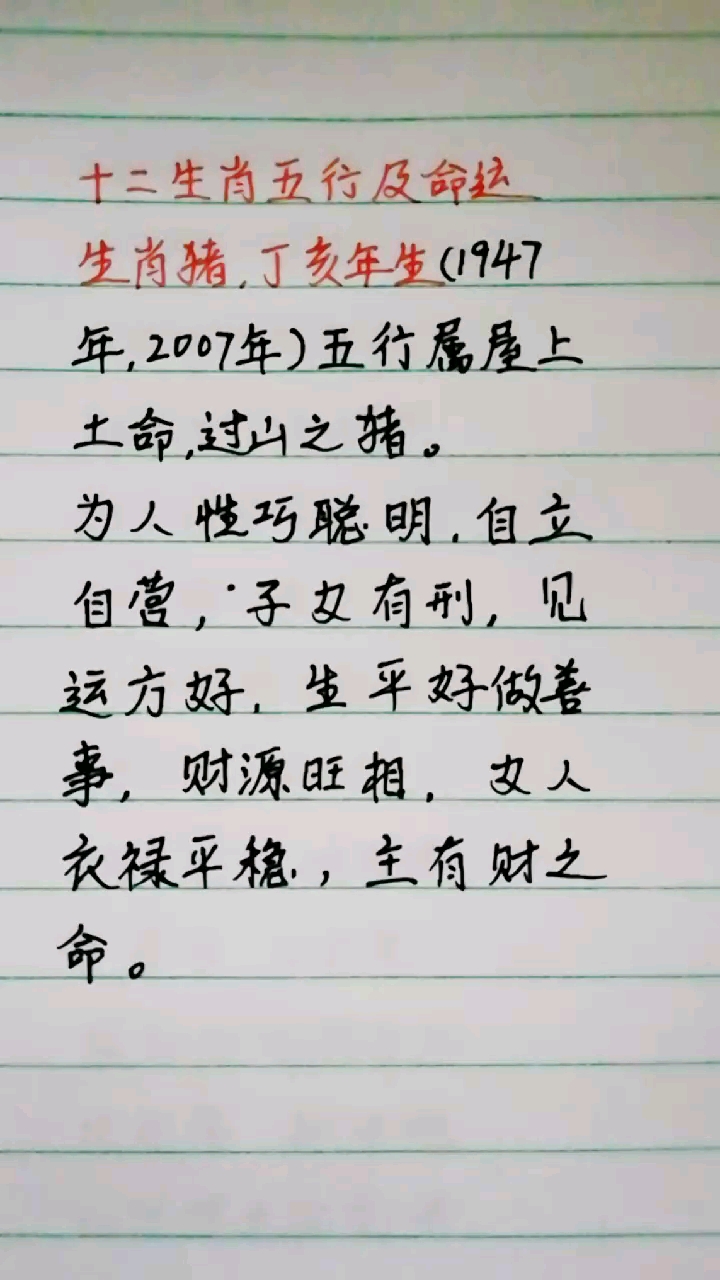 十二生肖五行及命运
生肖猪,丁亥年生(1947
年,2007年)五行属屋上
土命,过山之猪。
为人性巧聪明,自立
自营,子女有刑,见
运方好,生平好做善
事,财源旺相,女人
衣禄平稳,主有财之
命。